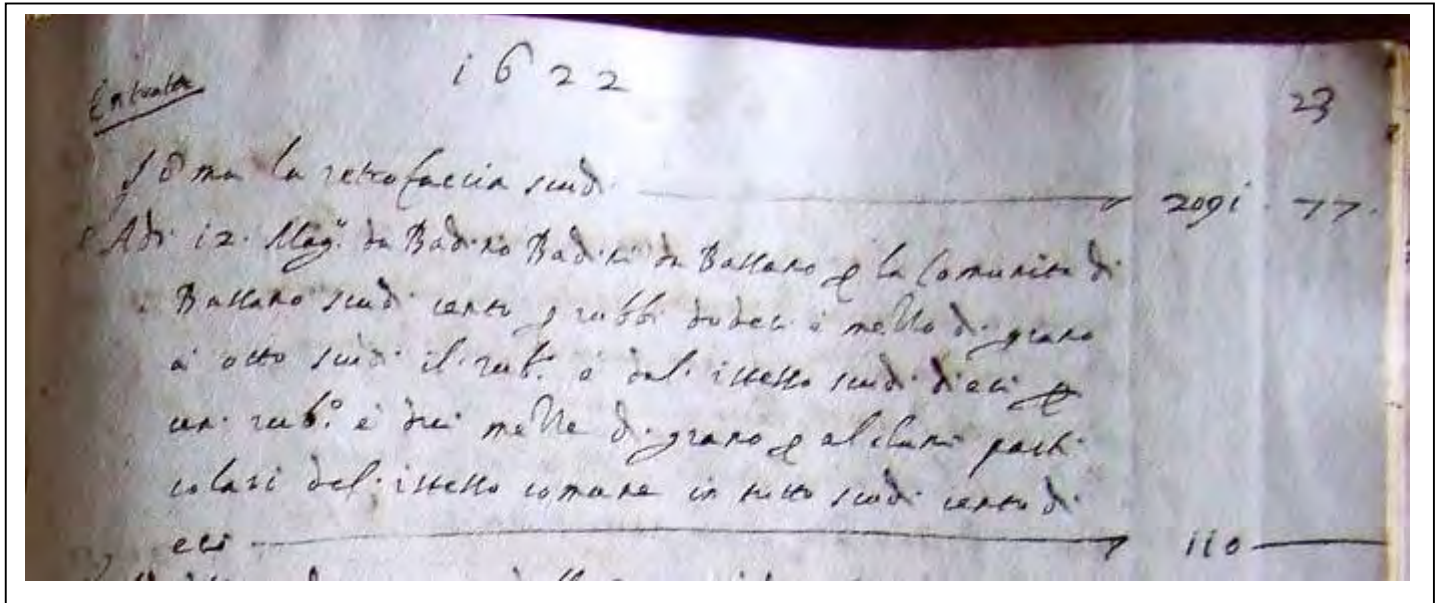 1622
Entrata
23
Sõma la retrofaccia scudi 2091 . 77 .
Adi . 12 . Magº. da Badino Badini da Bassano p la Comunita di
Bassano scudi cento p rubbi dodeci è mezzo di grano
à otto scudi il rubº. è dal istesso scudi dieci p
un rubº. è due mezze di grano p alcuni parti
colari del istesso comune in tutto scudi cento di
eci 110